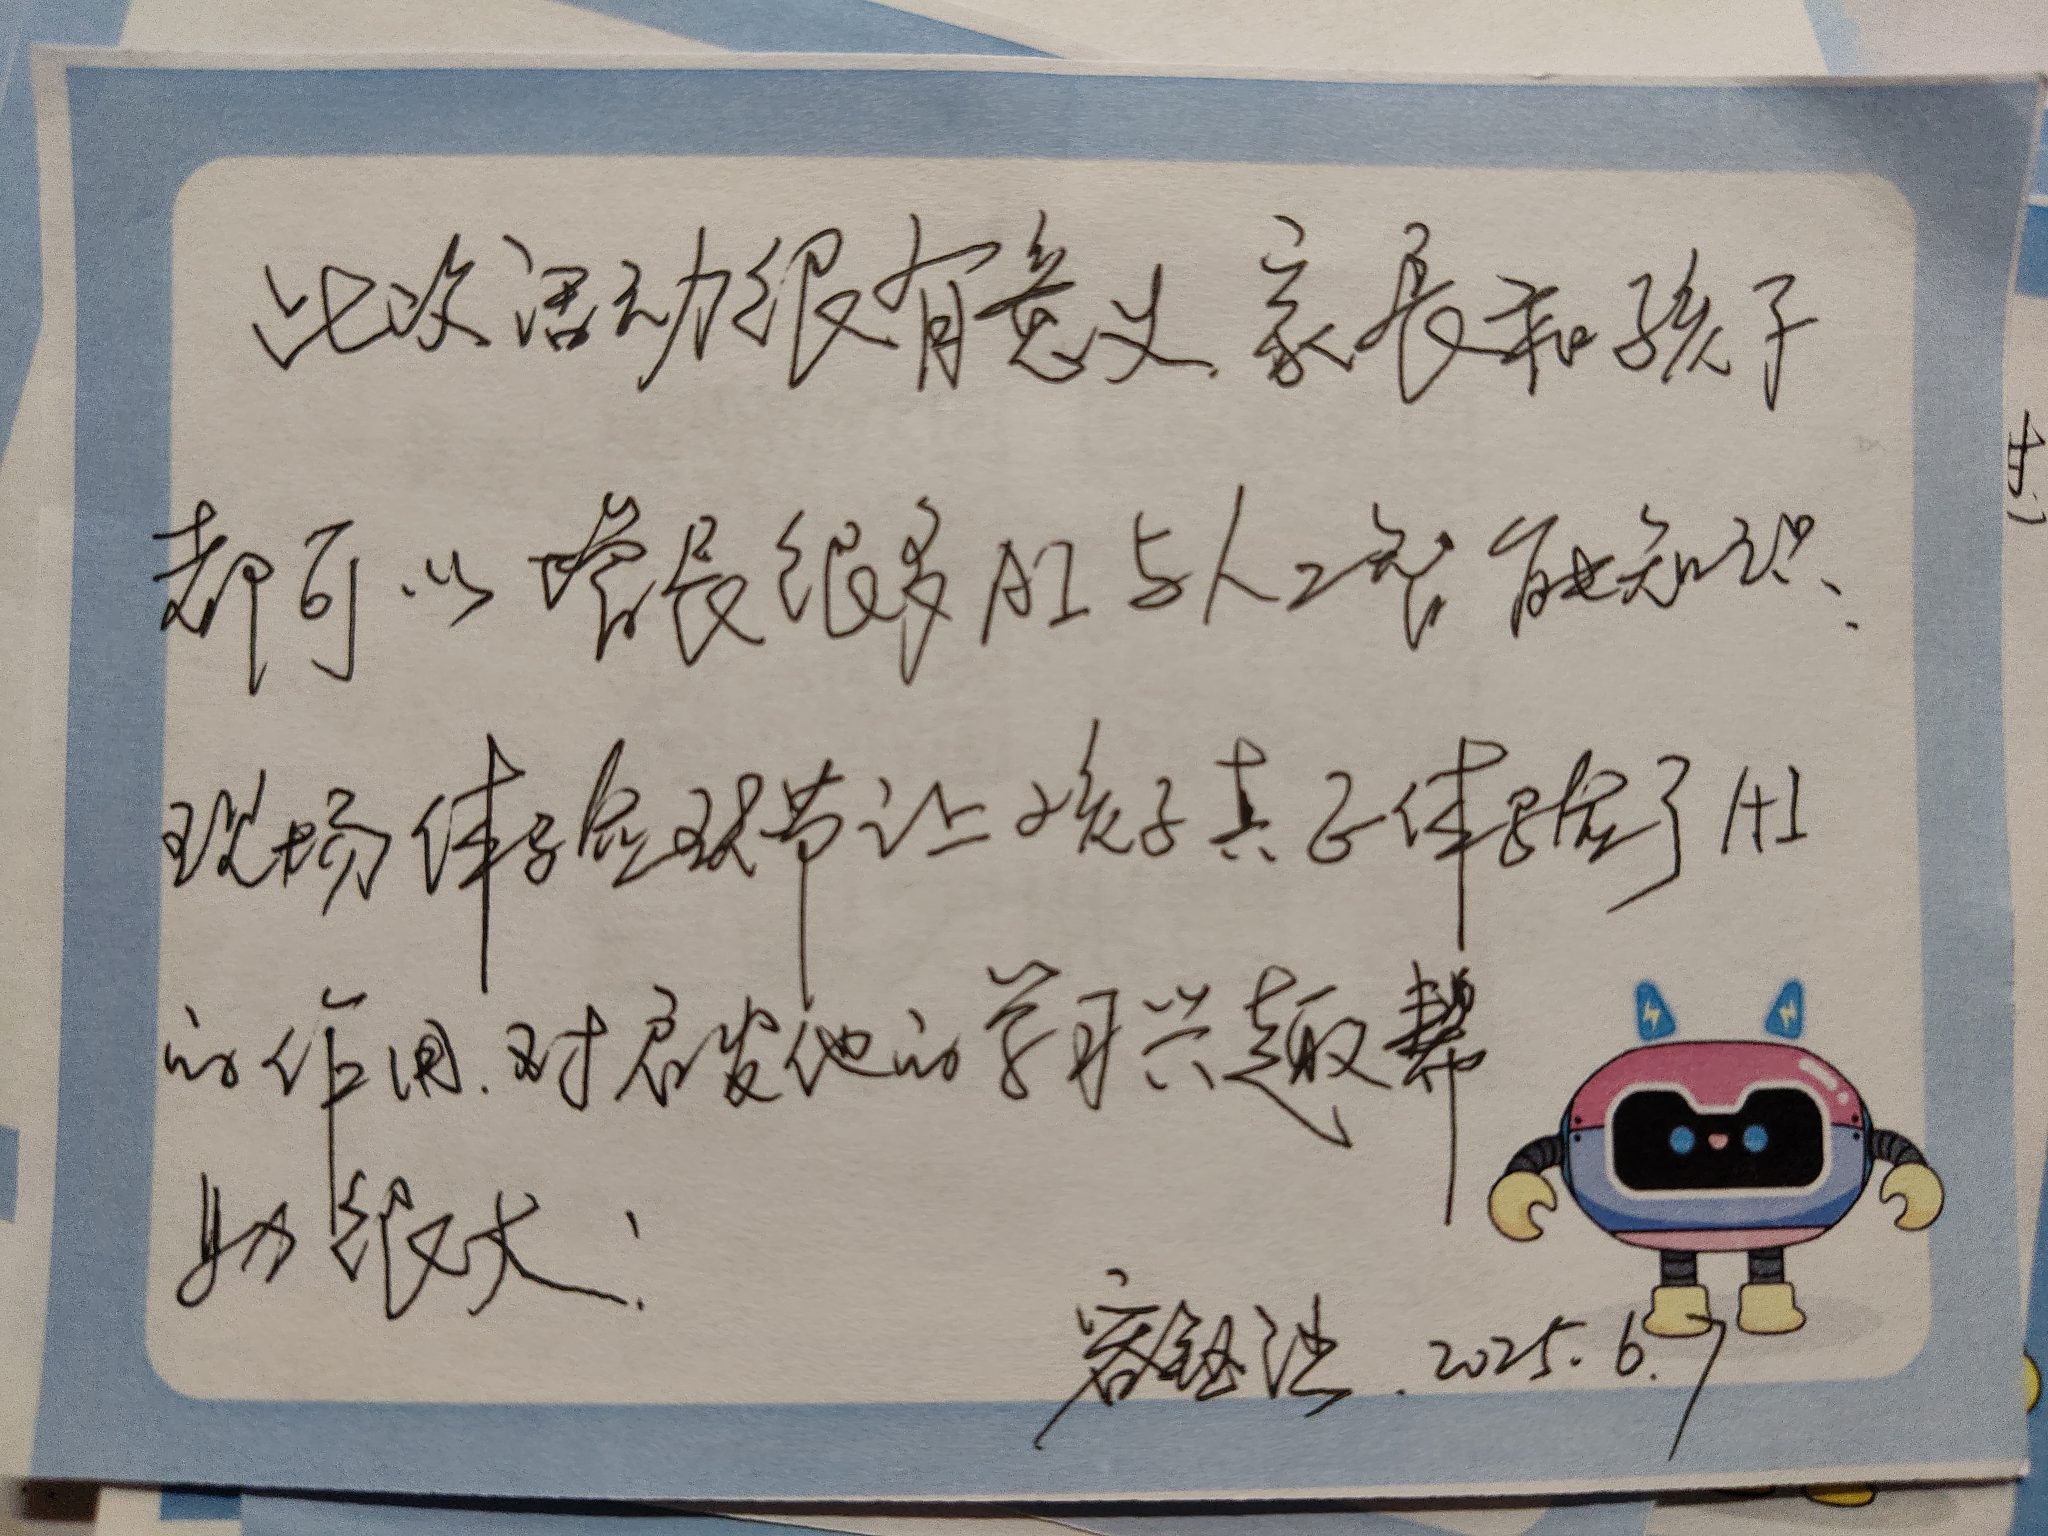 此次活动很有意义.家长和孩子
都可以增长很多AI与人工智能知识.
现场体验环节让孩子真正体验了AI
的作用.对启发他的学习兴趣帮
助很大.
2025.6.7